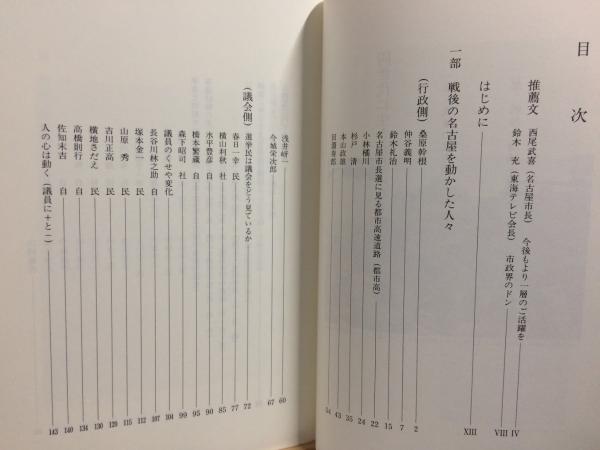 目次
推薦文 西尾武喜(名古屋市長) 今後もより一層のご活躍を IV
鈴木 充(東海テレビ会長) 市政界のドン VIII
はじめに XIII
一部 戦後の名古屋を動かした人々
(行政側)
桑原幹根 2
仲谷義明 7
鈴木礼治 15
名古屋市長選に見る都市高速道路(都市高) 22
小林橘川 24
杉戸 清 35
本山政雄 43
田淵寿郎 54
浅井研一 60
今城栄次郎 67
(議会側)
選挙民は議会をどう見ているか 72
春日一幸 民 77
横山利秋 社 85
水平豊彦 自 90
橋本繁蔵 自 95
森下昭司 社 99
議員のくせや変化 104
長谷川林之助 自 107
塚本金一 民 112
山原 秀 民 115
吉川正高 民 120
横地さだえ 民 130
高橋則行 自 134
佐知末吉 自 140
人の心は動く(議員に+と−) 143